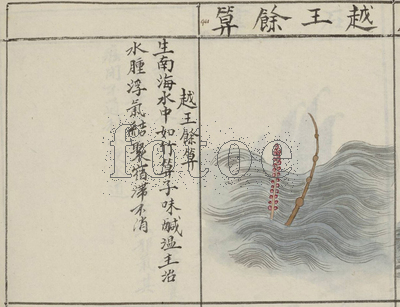 越王餘算
越王餘算
生南海水中如竹算子味鹹溫主治
水腫浮氣結聚宿滯不消
fatoe